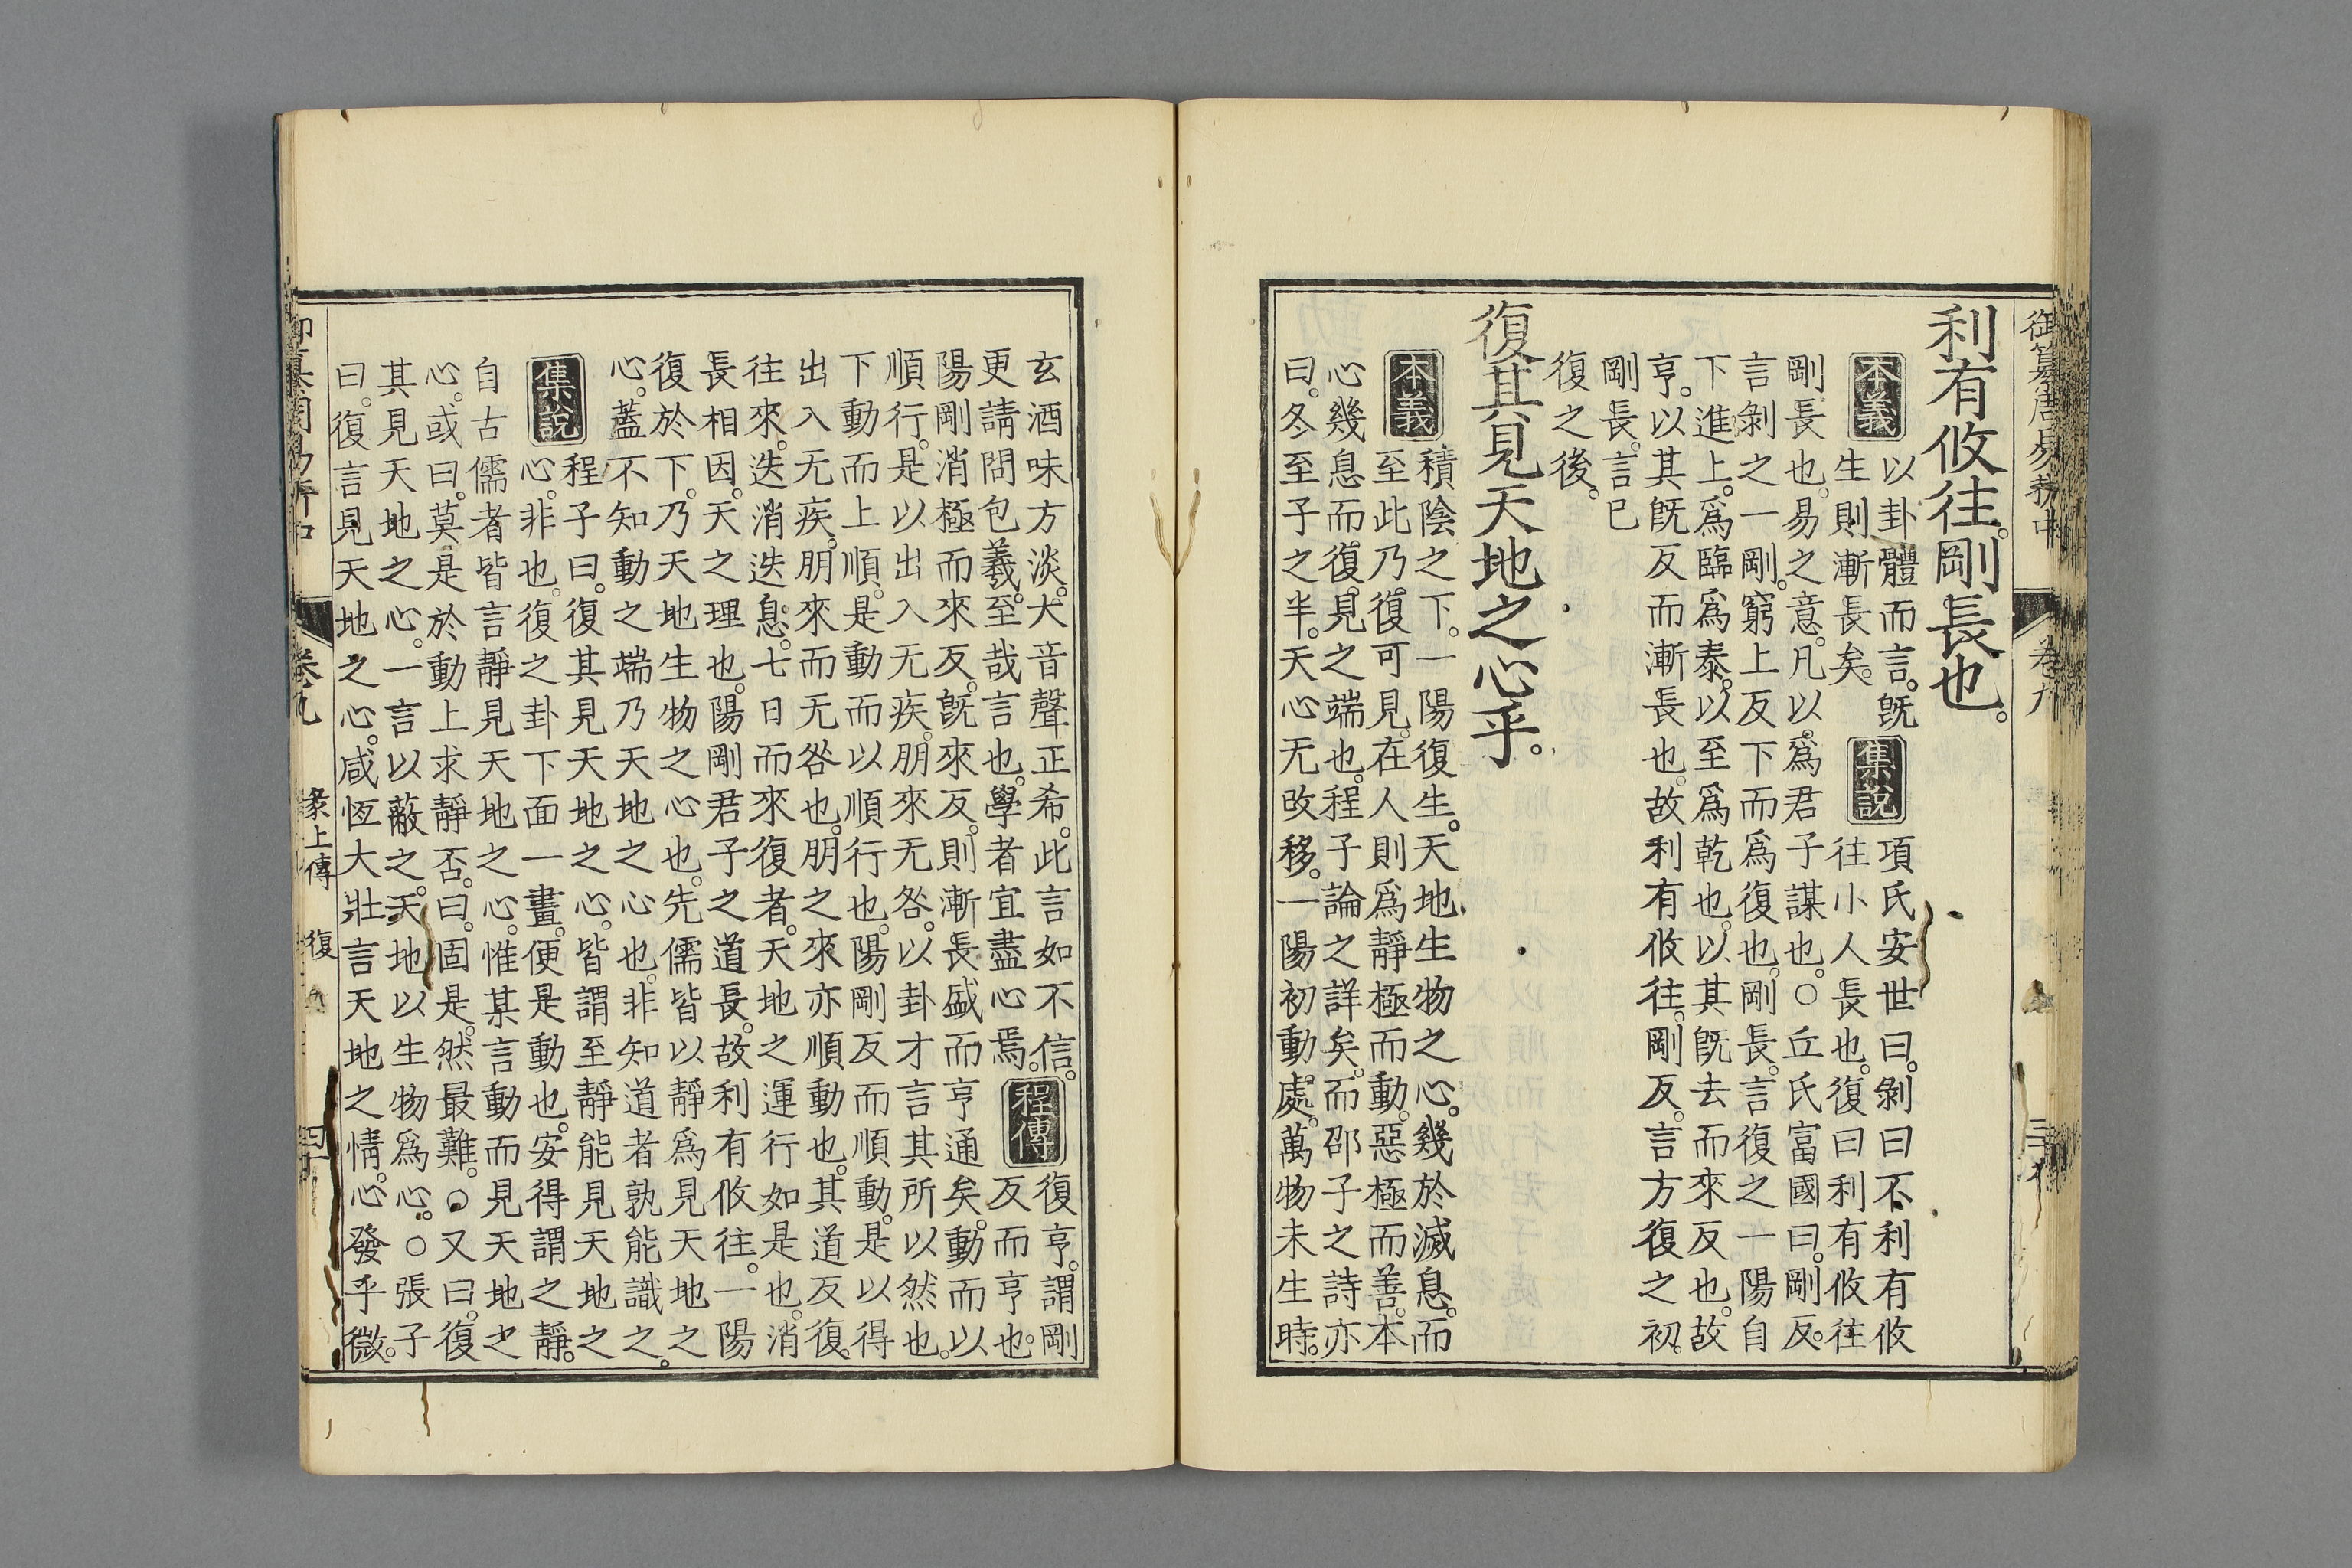 御纂周易折中
卷九
利有攸往。剛長也。
本義
以卦體而言。旣
生則漸長矣。
集說
項氏安世曰。剝曰不利有攸
往小人長也。復曰利有攸往
剛長也。易之意。凡以爲君子謀也。○丘氏富國曰。剛反。
言剝之一剛。窮上反下而爲復也。剛長。言復之一陽自
下進上。爲臨爲泰。以至爲乾也。以其旣去而來反也。故
亨。以其旣反而漸長也。故利有攸往。剛反。言方復之初。
剛長。言已
復之後。
復其見天地之心乎。
本義
積陰之下。一陽復生。天地生物之心。幾於滅息。而
至此乃復可見。在人則爲靜極而動。惡極而善。本
心幾息而復見之端也。程子論之詳矣。而邵子之詩亦
曰。冬至子之半。天心无改移。一陽初動處。萬物未生時。
玄酒味方淡。大音聲正希。此言如不信。
更請問包羲。至哉言也。學者宜盡心焉。
程傳
復亨。謂剛
反而亨也。
陽剛消極而來反。旣來反。則漸長盛而亨通矣。動而以
順行。是以出入无疾。朋來无咎。以卦才言其所以然也。
下動而上順。是動而以順行也。陽剛反而順動。是以得
出入无疾。朋來而无咎也。朋之來亦順動也。其道反復。
往來。迭消迭息。七日而來復者。天地之運行如是也。消
長相因。天之理也。陽剛君子之道長。故利有攸往。一陽
復於下。乃天地生物之心也。先儒皆以靜爲見天地之
心。蓋不知動之端乃天地之心也。非知道者孰能識之。
集說
程子曰。復其見天地之心。皆謂至靜能見天地之
心。非也。復之卦下面一畫。便是動也。安得謂之靜。
自古儒者皆言靜見天地之心。惟某言動而見天地之
心。或曰。莫是於動上求靜否。曰。固是。然最難。○又曰。復
其見天地之心。一言以蔽之。天地以生物爲心。○張子
曰。復言見天地之心。咸恆大壯言天地之情。心發乎微。
卷九
彖上傳
復